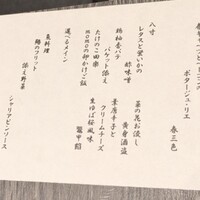 ポタージュ・リエ
春三色
八寸
レタスと蛍いかの
酢味噌
菜の花お浸し
黄身酒盗
鶏柚香バテ
バケット添え
葉唐辛子と
クリームチーズ
たけのこ田楽
生ゆば桜風味
momoの卵かけご飯
鼈甲餡
選べるメイン
魚料理
鱧のフリット
添え野菜
シャリアピンソース